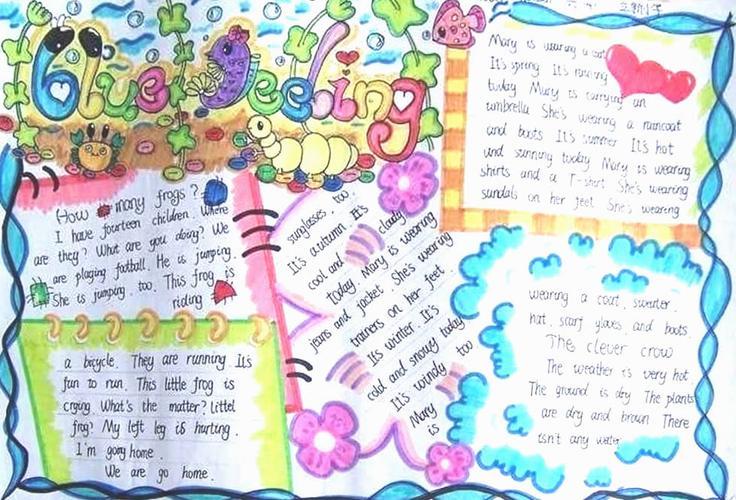 Blue Feeling
How many frogs?
I have fourteen children. Where
are they? What are you doing? We
are playing football. He is jumping.
She is jumping. too. This frog is
riding
a bicycle. They are running. It's
fun to run. This little frog is
crying. What's the matter? Littel
frog? My left leg is hurting.
I'm gong home.
We are go home.
Mary is wearing a coat
It's spring. It's raining
today Mary is carrying an
umbrella She's wearing a raincoat
and boots It's summer It's hot
and sunning today Mary is wearing
shirts and a T-shirt She's wearing
sandals on her feet She's wearing
sunglasses. too.
It's autumn. It's
cool and cloudy
today. Mary is wearing
jeans and jacket. She's wearing
trainers on her feet.
It's winter. It's
cold and snowy today
It's windy too
Mary
is
wearing a coat, sweater.
hat, scarf gloves, and boots.
The clever crow
The weather is very hot
The ground is dry The plants
are dry and brown There
isn't any water